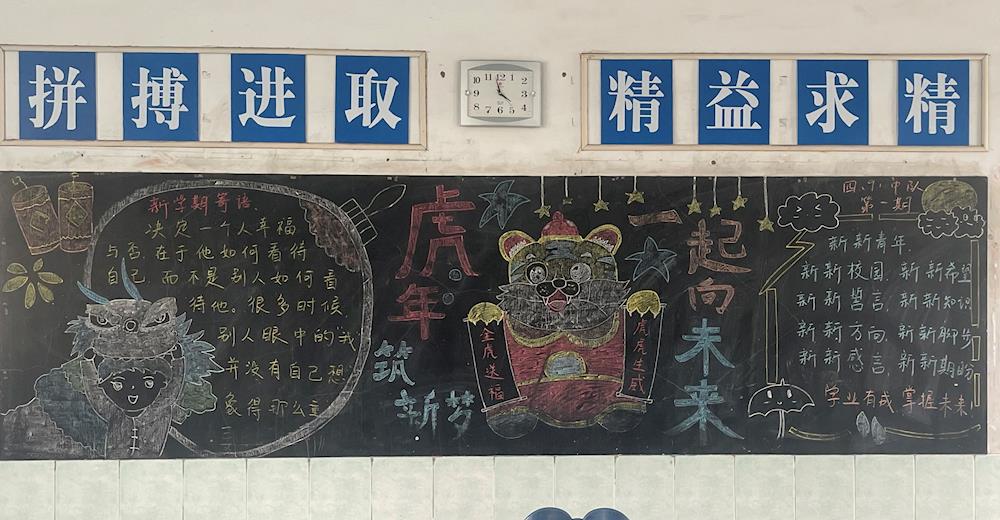 拼搏进取
精益求精
新学期寄语
决定一个人幸福
与否,在于他如何看待
自己,而不是别人如何看
待他。很多时候,
别人眼中的“我”
并没有自己想
象得那么重
虎年
筑
新梦
金虎送福
虎虎生威
一起向未来
四、1中队
第一期
新新青年
新新校园,新新希望
新新誓言,新新知识
新新方向,新新脚步
新新感言,新新期盼
学业有成 掌握未来